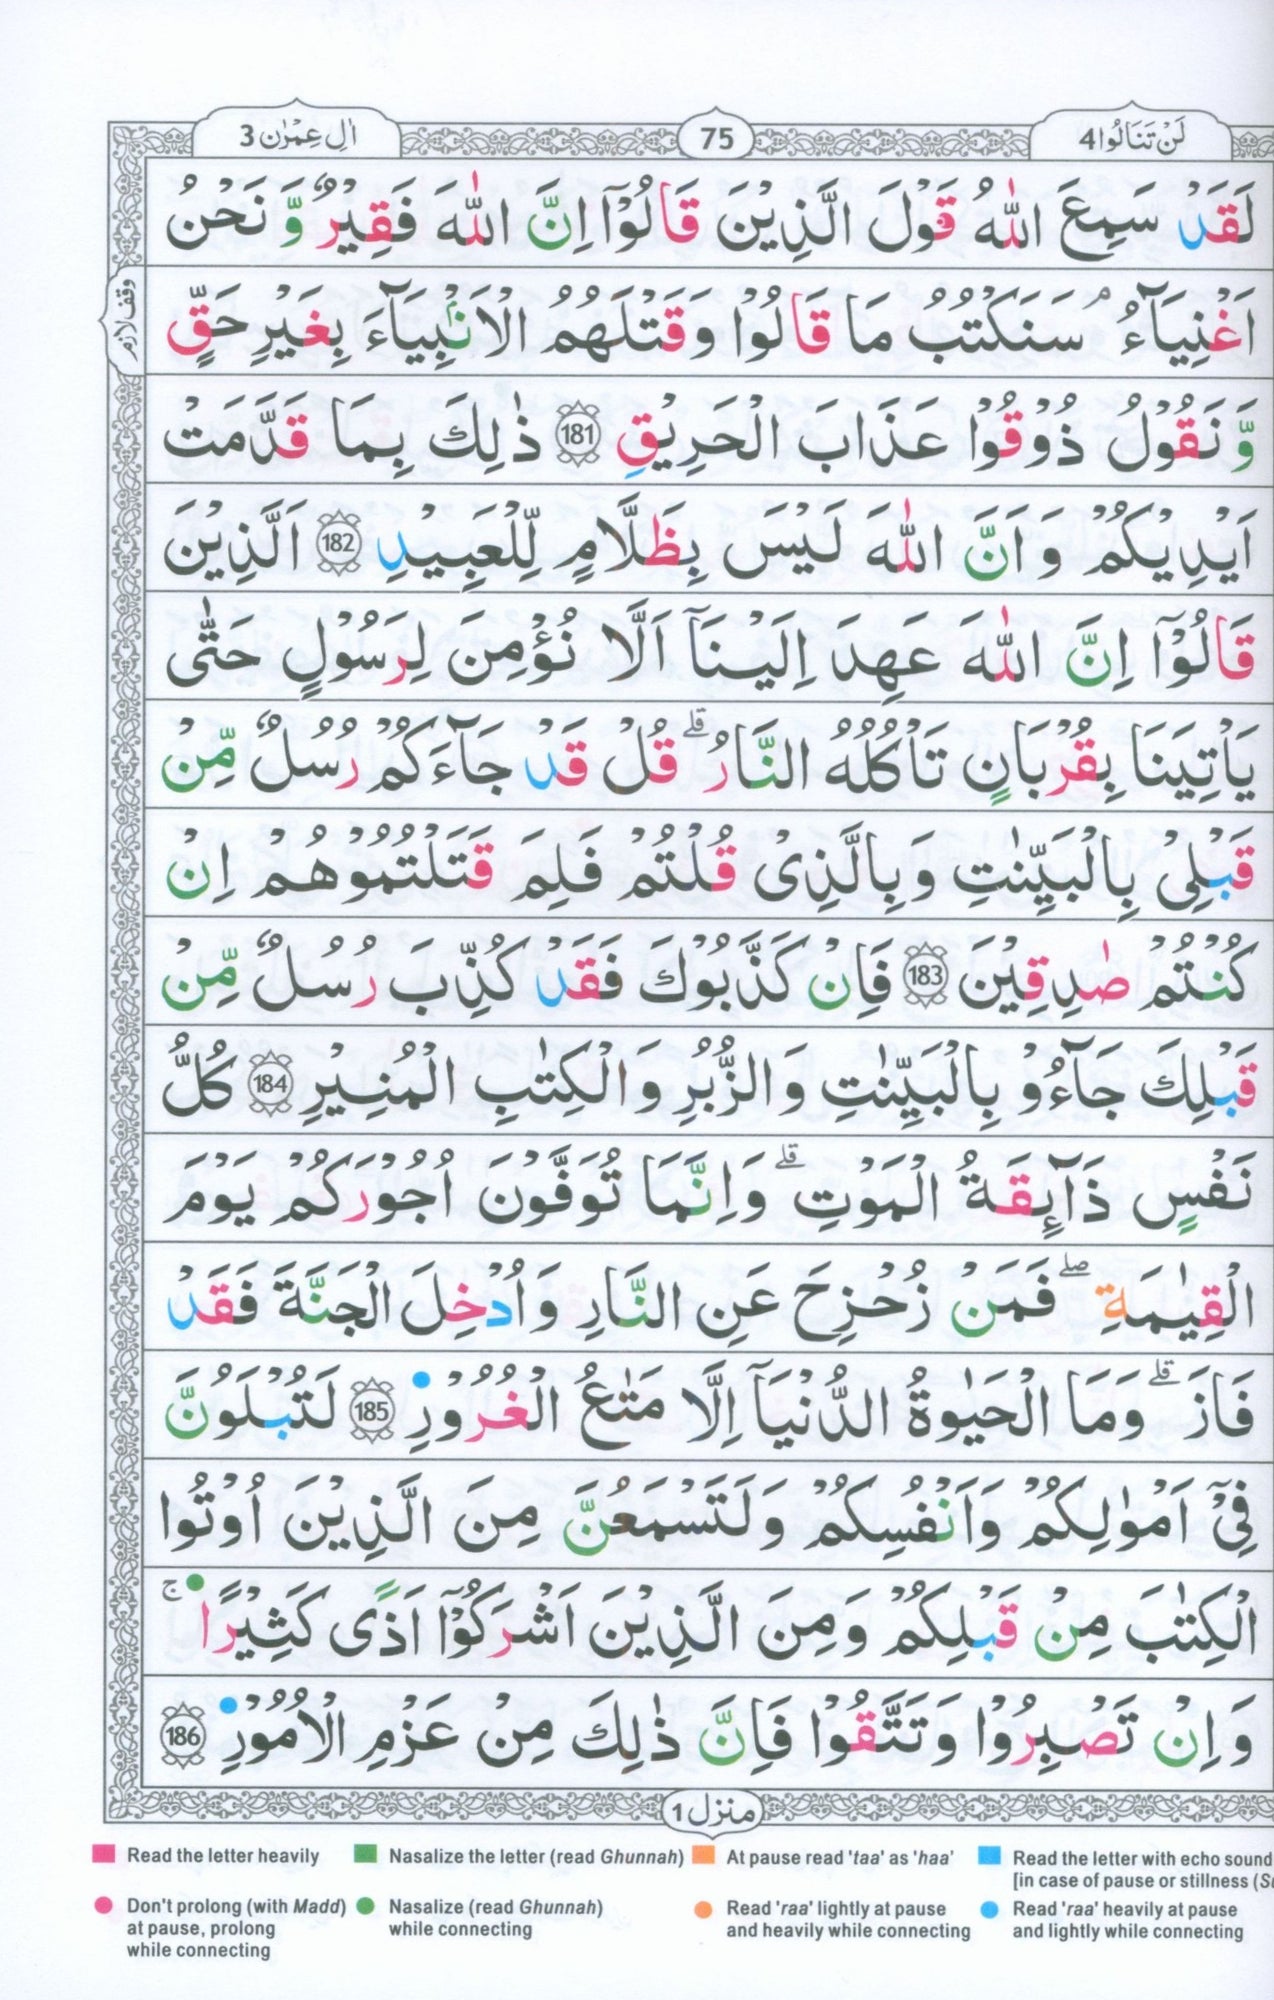 اٰلِ عِمْرٰن 3
75
لَنْ تَنَالُوا 4
لَقَدْ سَمِعَ اللّٰهُ قَوْلَ الَّذِيْنَ قَالُوْۤا اِنَّ اللّٰهَ فَقِيْرٌ وَّ نَحْنُ
اَغْنِيَآءُ ۘ سَنَكْتُبُ مَا قَالُوْا وَقَتْلَهُمُ الْاَنْۢبِيَآءَ بِغَيْرِ حَقٍّ
وقف لازم
وَّ نَقُوْلُ ذُوْقُوْا عَذَابَ الْحَرِيْقِ 181 ذٰلِكَ بِمَا قَدَّمَتْ
اَيْدِيْكُمْ وَ اَنَّ اللّٰهَ لَيْسَ بِظَلَّامٍ لِّلْعَبِيْدِ 182 اَلَّذِيْنَ
قَالُوْۤا اِنَّ اللّٰهَ عَهِدَ اِلَيْنَاۤ اَلَّا نُؤْمِنَ لِرَسُوْلٍ حَتّٰى
يَاْتِيَنَا بِقُرْبَانٍ تَاْكُلُهُ النَّارُ ۗ قُلْ قَدْ جَآءَكُمْ رُسُلٌ مِّنْ
قَبْلِىْ بِالْبَيِّنٰتِ وَ بِالَّذِىْ قُلْتُمْ فَلِمَ قَتَلْتُمُوْهُمْ اِنْ
كُنْتُمْ صٰدِقِيْنَ 183 فَاِنْ كَذَّبُوْكَ فَقَدْ كُذِّبَ رُسُلٌ مِّنْ
قَبْلِكَ جَآءُوْ بِالْبَيِّنٰتِ وَ الزُّبُرِ وَ الْكِتٰبِ الْمُنِيْرِ 184 كُلُّ
نَفْسٍ ذَآئِقَةُ الْمَوْتِ ۗ وَ اِنَّمَا تُوَفَّوْنَ اُجُوْرَكُمْ يَوْمَ
الْقِيٰمَةِ ۖ فَمَنْ زُحْزِحَ عَنِ النَّارِ وَ اُدْخِلَ الْجَنَّةَ فَقَدْ
فَازَ ۗ وَمَا الْحَيٰوةُ الدُّنْيَاۤ اِلَّا مَتٰعُ الْغُرُوْرِ 185 لَتُبْلَوُنَّ
فِىْۤ اَمْوٰلِكُمْ وَ اَنْفُسِكُمْ وَ لَتَسْمَعُنَّ مِنَ الَّذِيْنَ اُوْتُوا
الْكِتٰبَ مِنْ قَبْلِكُمْ وَ مِنَ الَّذِيْنَ اَشْرَكُوْۤا اَذًى كَثِيْرًا ۚ
وَ اِنْ تَصْبِرُوْا وَ تَتَّقُوْا فَاِنَّ ذٰلِكَ مِنْ عَزْمِ الْاُمُوْرِ 186
منزل 1
Read the letter heavily
Nasalize the letter (read Ghunnah)
At pause read 'taa' as 'haa'
Read the letter with echo sound
[in case of pause or stillness
Don't prolong (with Madd)
at pause, prolong
while connecting
Nasalize (read Ghunnah)
while connecting
Read 'raa' lightly at pause
and heavily while connecting
Read 'raa' heavily at pause
and lightly while connecting